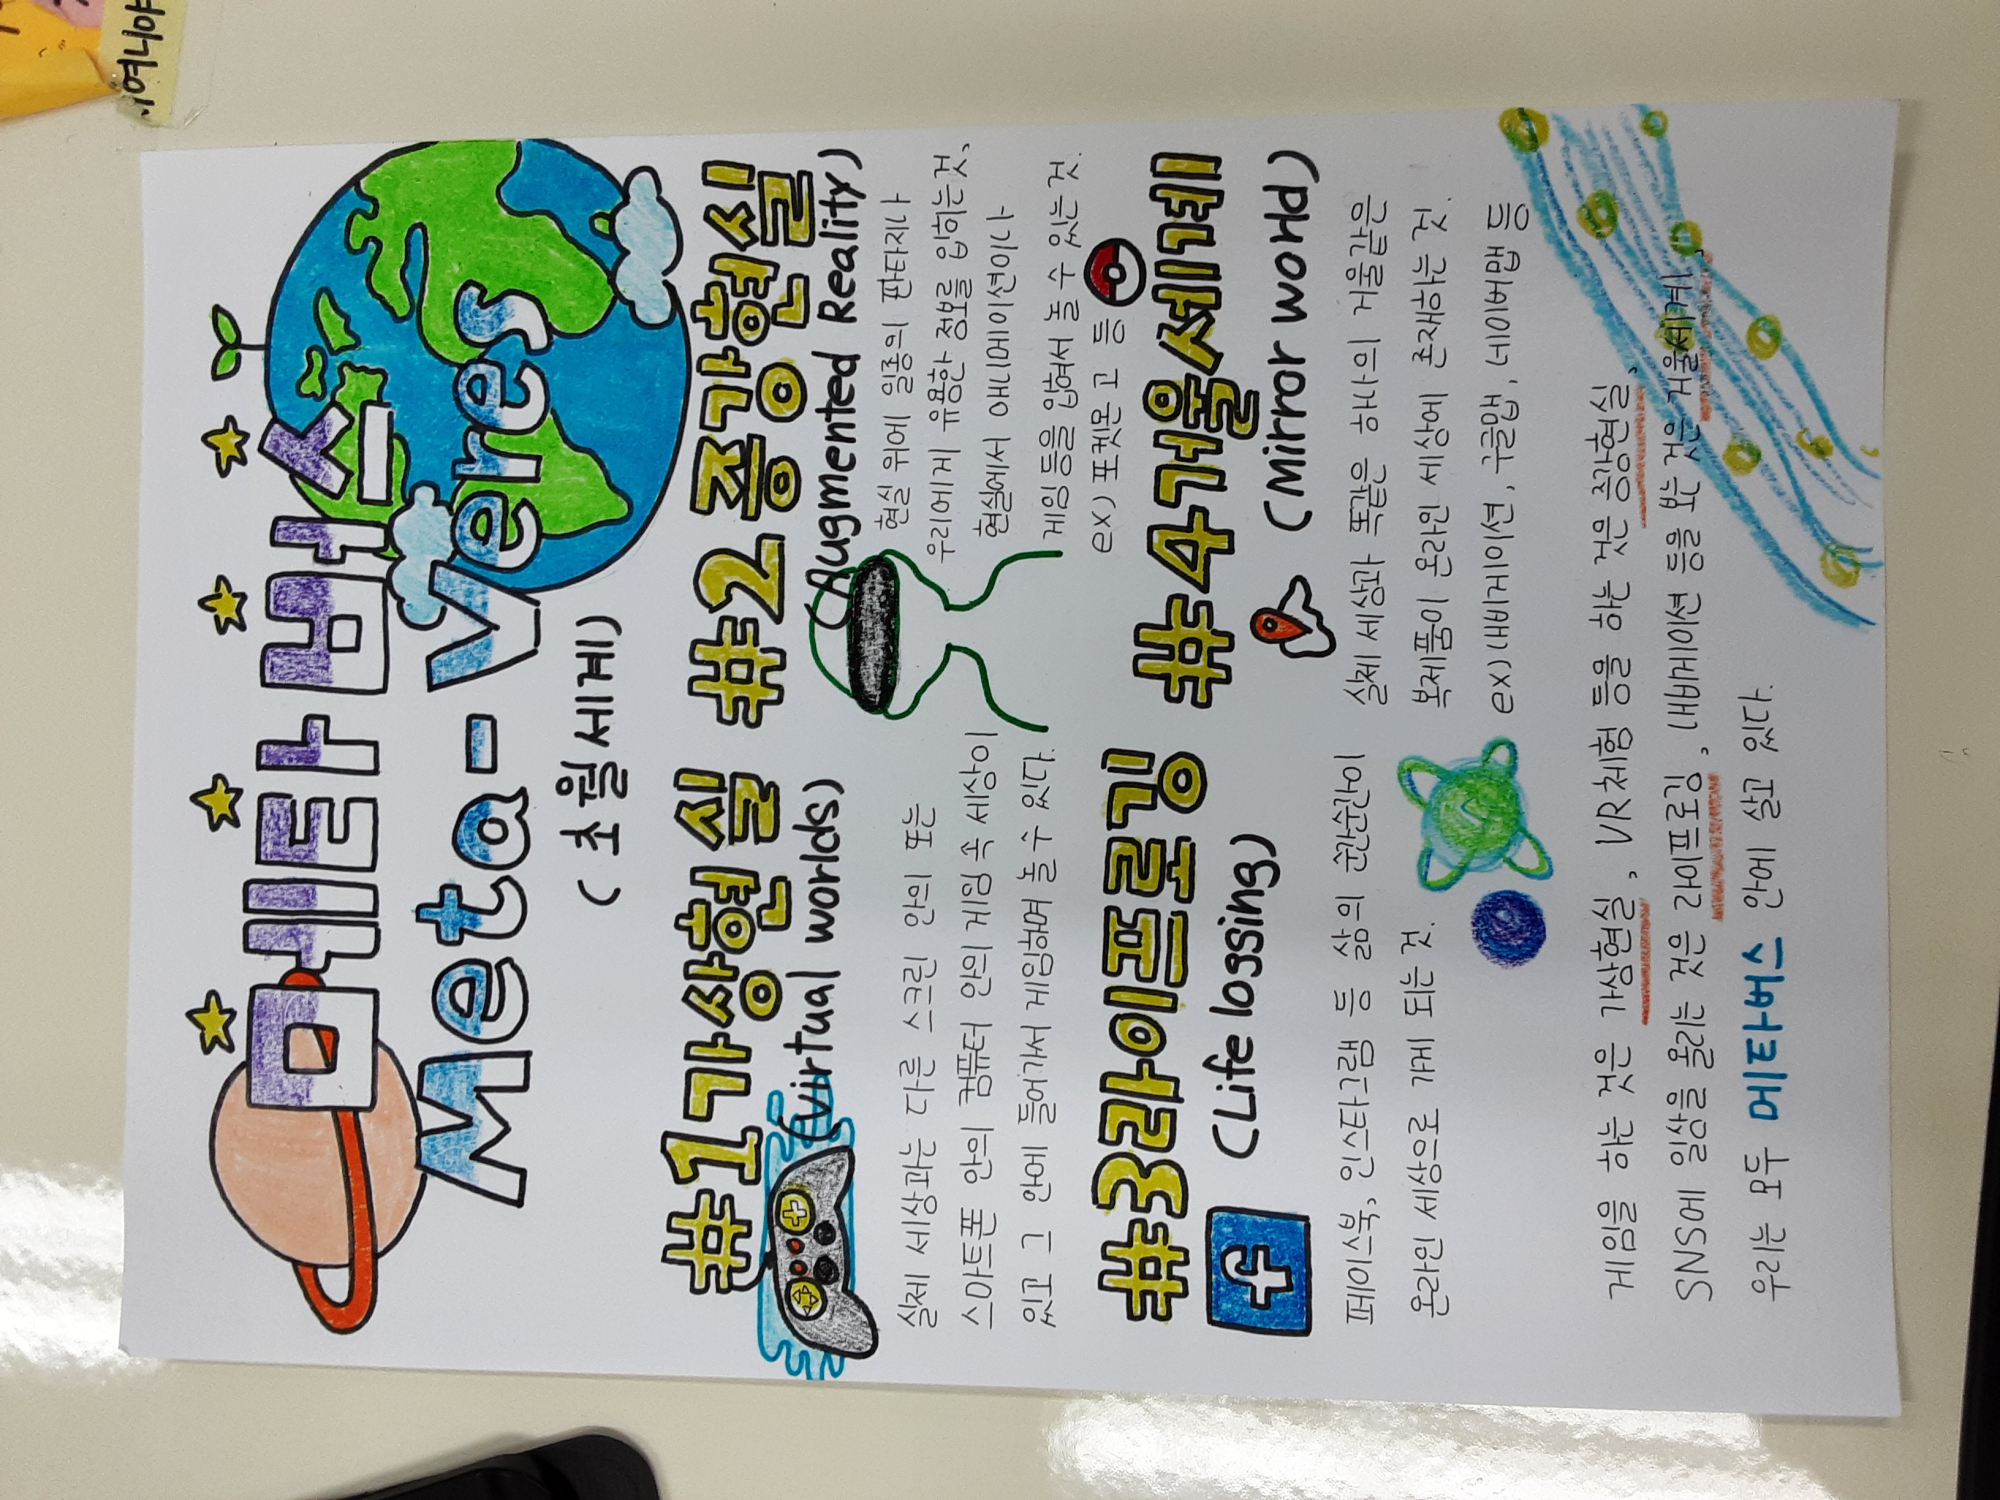 여니야
메타버스
Meta-Veres
(초월세계)
#1가상현실
(virtual worlds)
실제 세상과는 다른 스크린 안의 또는
스마트폰 안의 컴퓨터 안의 게임 속 세상이
있고 그 안에 들어가서 게임하며 놀 수 있다.
#2증강현실
(Augmented Reality)
현실 위에 일종의 판타지나
우리에게 유용한 정보를 입히는 것,
현실에서 애니메이션이나
게임 등을 입혀서 놀 수 있는 것.
ex) 포켓몬 고 등
#3라이프로깅
(Life lossing)
f
페이스북, 인스타그램 등 삶의 순간순간이
온라인 세상으로 가게 되는 것.
#4거울세계
(Mirror world)
실제 세상과 똑같은 하나의 거울같은
복제품이 온라인 세상에 존재하는 것.
ex) 내비게이션, 구글맵, 네이버맵 등
게임을 하는 것은 가상현실, VR체험 등을 하는 것은 증강현실,
SNS에 일상을 올리는 것은 라이프로깅, 내비게이션 등을 보는 것은 거울세계,
우리는 모두 메타버스 안에 살고 있다.